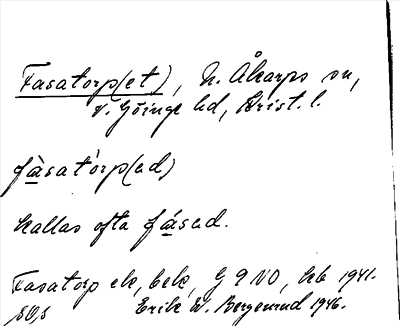 Fasatorp(et), N. Åkarps sn,
V. Göinge hd, Krist. l.
fàsatórp(ad)
kallas ofta fásad.
Fasatorp ek, bek, G 9 NO, kb 1941.
Erik W. Bergenrud 1946.